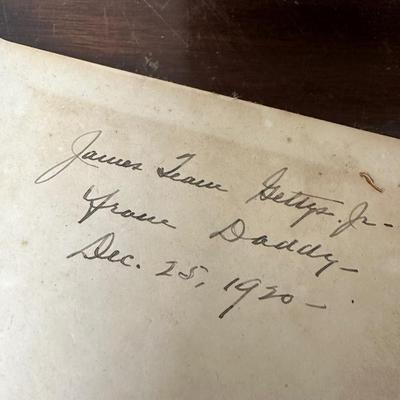 James Team Gettys. Jr-
from Daddy-
Dec. 25, 1920-